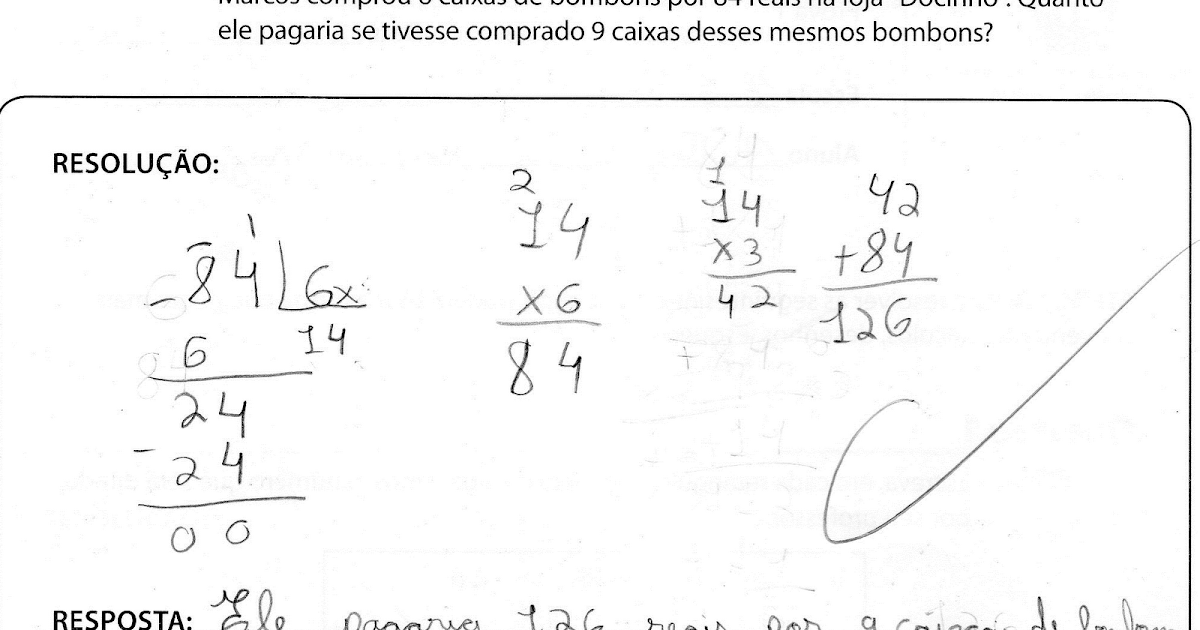 Marcos comprou 6 caixas de bombons por 84 reais na loja "Docinho". Quanto
ele pagaria se tivesse comprado 9 caixas desses mesmos bombons?
RESOLUÇÃO:
1
- 84 6x
6 14
24
- 24
00
2
14
x6
84
1
14
x3
42
42
+84
126
RESPOSTA: Ele pagaria 126 reais por 9 caixas de bombom